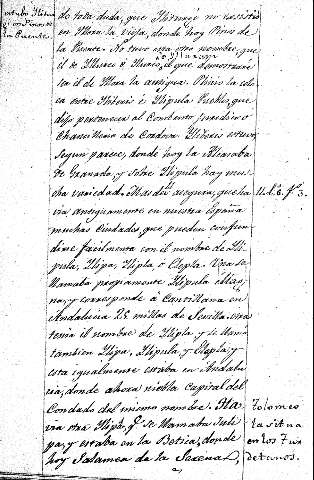 de toda duda, que Iliturgi no existió
en Mora la Vieja, donde hoy Puris de
la Puente. No tuvo esta otro nombre, que
el de Ilurco ó Ilurcó, el que demostraré
en el de Mora la antigua. Plinio la colo
ca entre Iliberis é Ilipula Pueblos, que
dijo pertenecia al Conbento juridico ó
Chancilleria de Cordova. Iliberis estuvo
segun parece, donde hoy la Alcazaba
de Granada, y sobre Ilipula hay mu
cha variedad. Masdeu asegura, que ha
via antiguamente en nuestra España
muchas Ciudades, que pueden confun
dirse facilmente con el nombre de Ili
pula, Ilipa, Ilipla, ó Elepla. Una se
llamaba propiamente Ilipula
na, y corresponde á Cantillana en
Andalucia 28 millas de Sevilla. otra
tenia el nombre de Ilipla, y se llamó
tambien Ilipa, Ilipula, y Elepla, y
esta igualmente estaba en Andalu
cia, donde ahora niebla Capital del
Condado del mismo nombre. Ha
via otra Ilipa, q.e se llamaba
pa, y estaba en la Betica, donde
hoy Zalamea de la Serena,
Tolomeo
la situa
en los Tur
detanos.